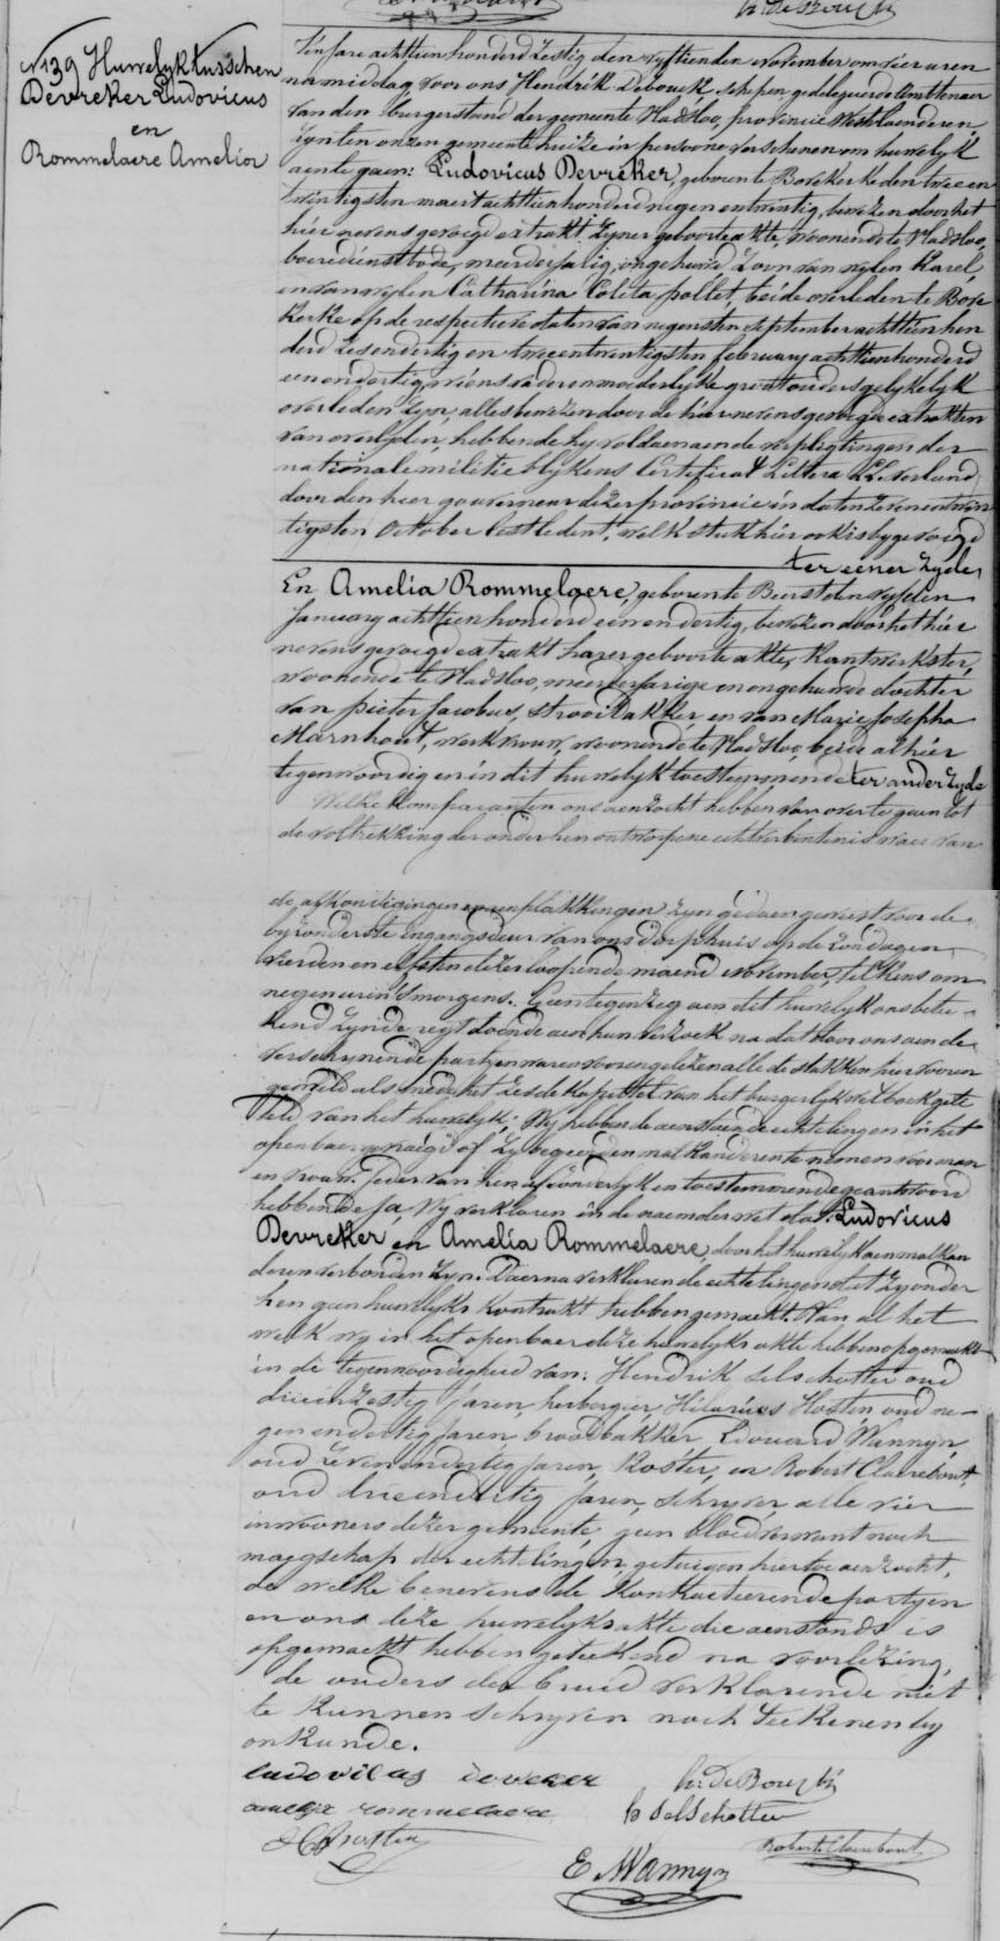 N 139 Huwelyk tusschen
Devreker Ludovicus
en
Rommelaere Amelia
T'en jare achttien honderd zestig den vyftienden november om vier uren
namiddag, voor ons Hendrik Debouck schepen gedelegueerde Ambtenaer
van den burgerstand der gemeente Vladsloo, provincie Westvlaenderen,
zyn ten onzen gemeentehuize in persoone verschenen om huwelyk
aen te gaen: Ludovicus Devreker, geboren te Bovekerke den twee en
twintigsten maert achttien honderd negen en twintig, bewezen door het
hier nevens gevoegd extrakt zyner geboorteakte, woonende te Vladsloo,
boeredienstbode, meerderjarig, ongehuwd zoon van wylen Karel,
en van wylen Catharina Coleta pollet, beide overleden te Bove
kerke op de respectieve daten van negensten september achttien hon
derd zesendertig en twee entwintigsten february achttien honderd
een en dertig, wiens vader en moederlyke grootouders gelykelyk
overleden zyn, alles bewezen door de hiernevens gevoegde extrakten
van overlyden, hebbende hy voldaen aen de verpligtingen der
nationale militie blykens Certificat Littera LL verleend
door den heer gouverneur dezer provincie in daten zeven entwin
tigsten October lestleden, welk stuk hier ook is bygevoegd
ter eener zyde,
En Amelia Rommelaere, geboren te Beerst den vyfden
January achttien honderd een en dertig, bewezen door het hier
nevens gevoegd extrakt harer geboorte akte, Kantwerkster,
woonende te Vladsloo, meerderjarige en ongehuwde dochter
van pieter Jacobus, strooidakker, en van Marie Josepha
Marnhout, werkvrouw, woonende te Vladsloo, beide alhier
tegenwoordig en in dit huwelyk toestemmende ter ander zyde
Welke komparanten ons aenzocht hebben van over te gaen tot
de voltrekking der onder hen ontworpene echtverbintenis waer van
de afkondigingen en aenplakkingen zyn gedaen geweest voor de
byzonderste ingangsdeur van ons dorphuis op de zondagen
vierden en elfsten dezer loopende maend november, telkens om
negen uren 's morgens. Geen tegenzeg aen dit huwelyk ons betee-
kend zynde regt doende aen hun verzoek na dat door ons aen de
verschynende partyen waren voorengelezen alle de stukken hiervooren
gemeld als mede het zesde kapittel van het burgerlyk wetboek gete
teld van het huwelyk; Wy hebben de aenstaende echtelingen in het
openbaer gevraegd of zy begeerden malkanderen te nemen voor man
en vrouw. Jeder van hen afzonderlyk en toestemmende geantwoord
hebbende Ja, Wy verklaren in de naem der wet dat: Ludovicus
Devreker en Amelia Rommelaere, door het huwelyk aen malkan
deren verbonden zyn. Daerna verklaren de echtelingen dat zy onder
hen geen huwelyks kontrakt hebben gemaekt. Van al het
welk wy in het openbaer deze huwelyks akte hebben opgemaekt
in de tegenwoordigheid van: Hendrik Delschotter oud
drie en zestig jaren, herbergier, Hilarius Hosten, oud ne-
gen en dertig jaren, broodbakker, Edouard Wannyn,
oud zeven en dertig jaren, Koster, en Robert Clairebout,
oud drie en dertig jaren, schryver, alle vier
inwooners dezer gemeente, geen bloedverwant noch
maegschap der echtelingen, getuigen hiertoe aenzocht,
de welke benevens de Kontracteerende partyen
en ons deze huwelyksakte die aenstonds is
opgemaekt hebben geteekend na voorlezing,
de ouders der bruid verklarende niet
te kunnen schryven noch teekenen by
onkunde.
Ludovicus devreker H. DeBouck
amelia rommelaere H Delschotter
H Hosten Robert Clairebout
E Wannyn